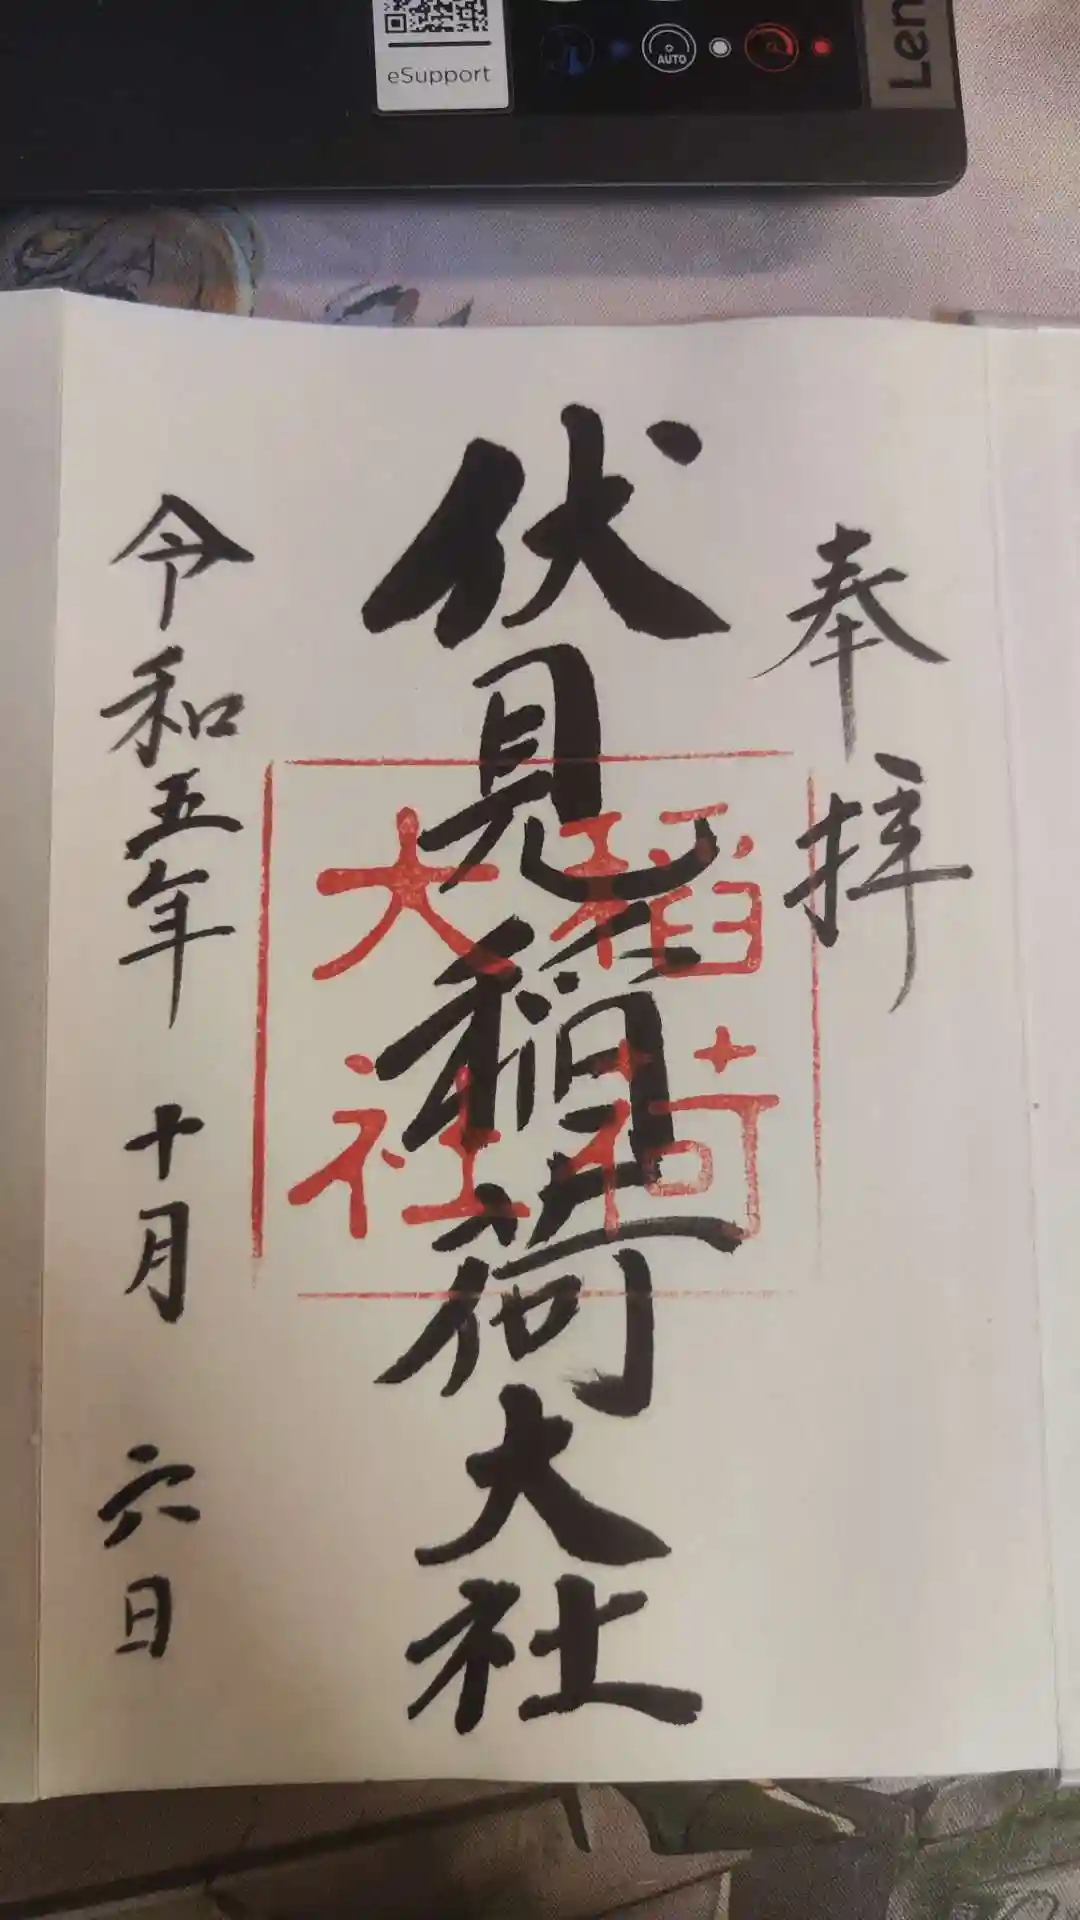 eSupport
AUTO
Len
奉拝
伏見稲荷大社
稲荷
大社
令和五年 十月 六日